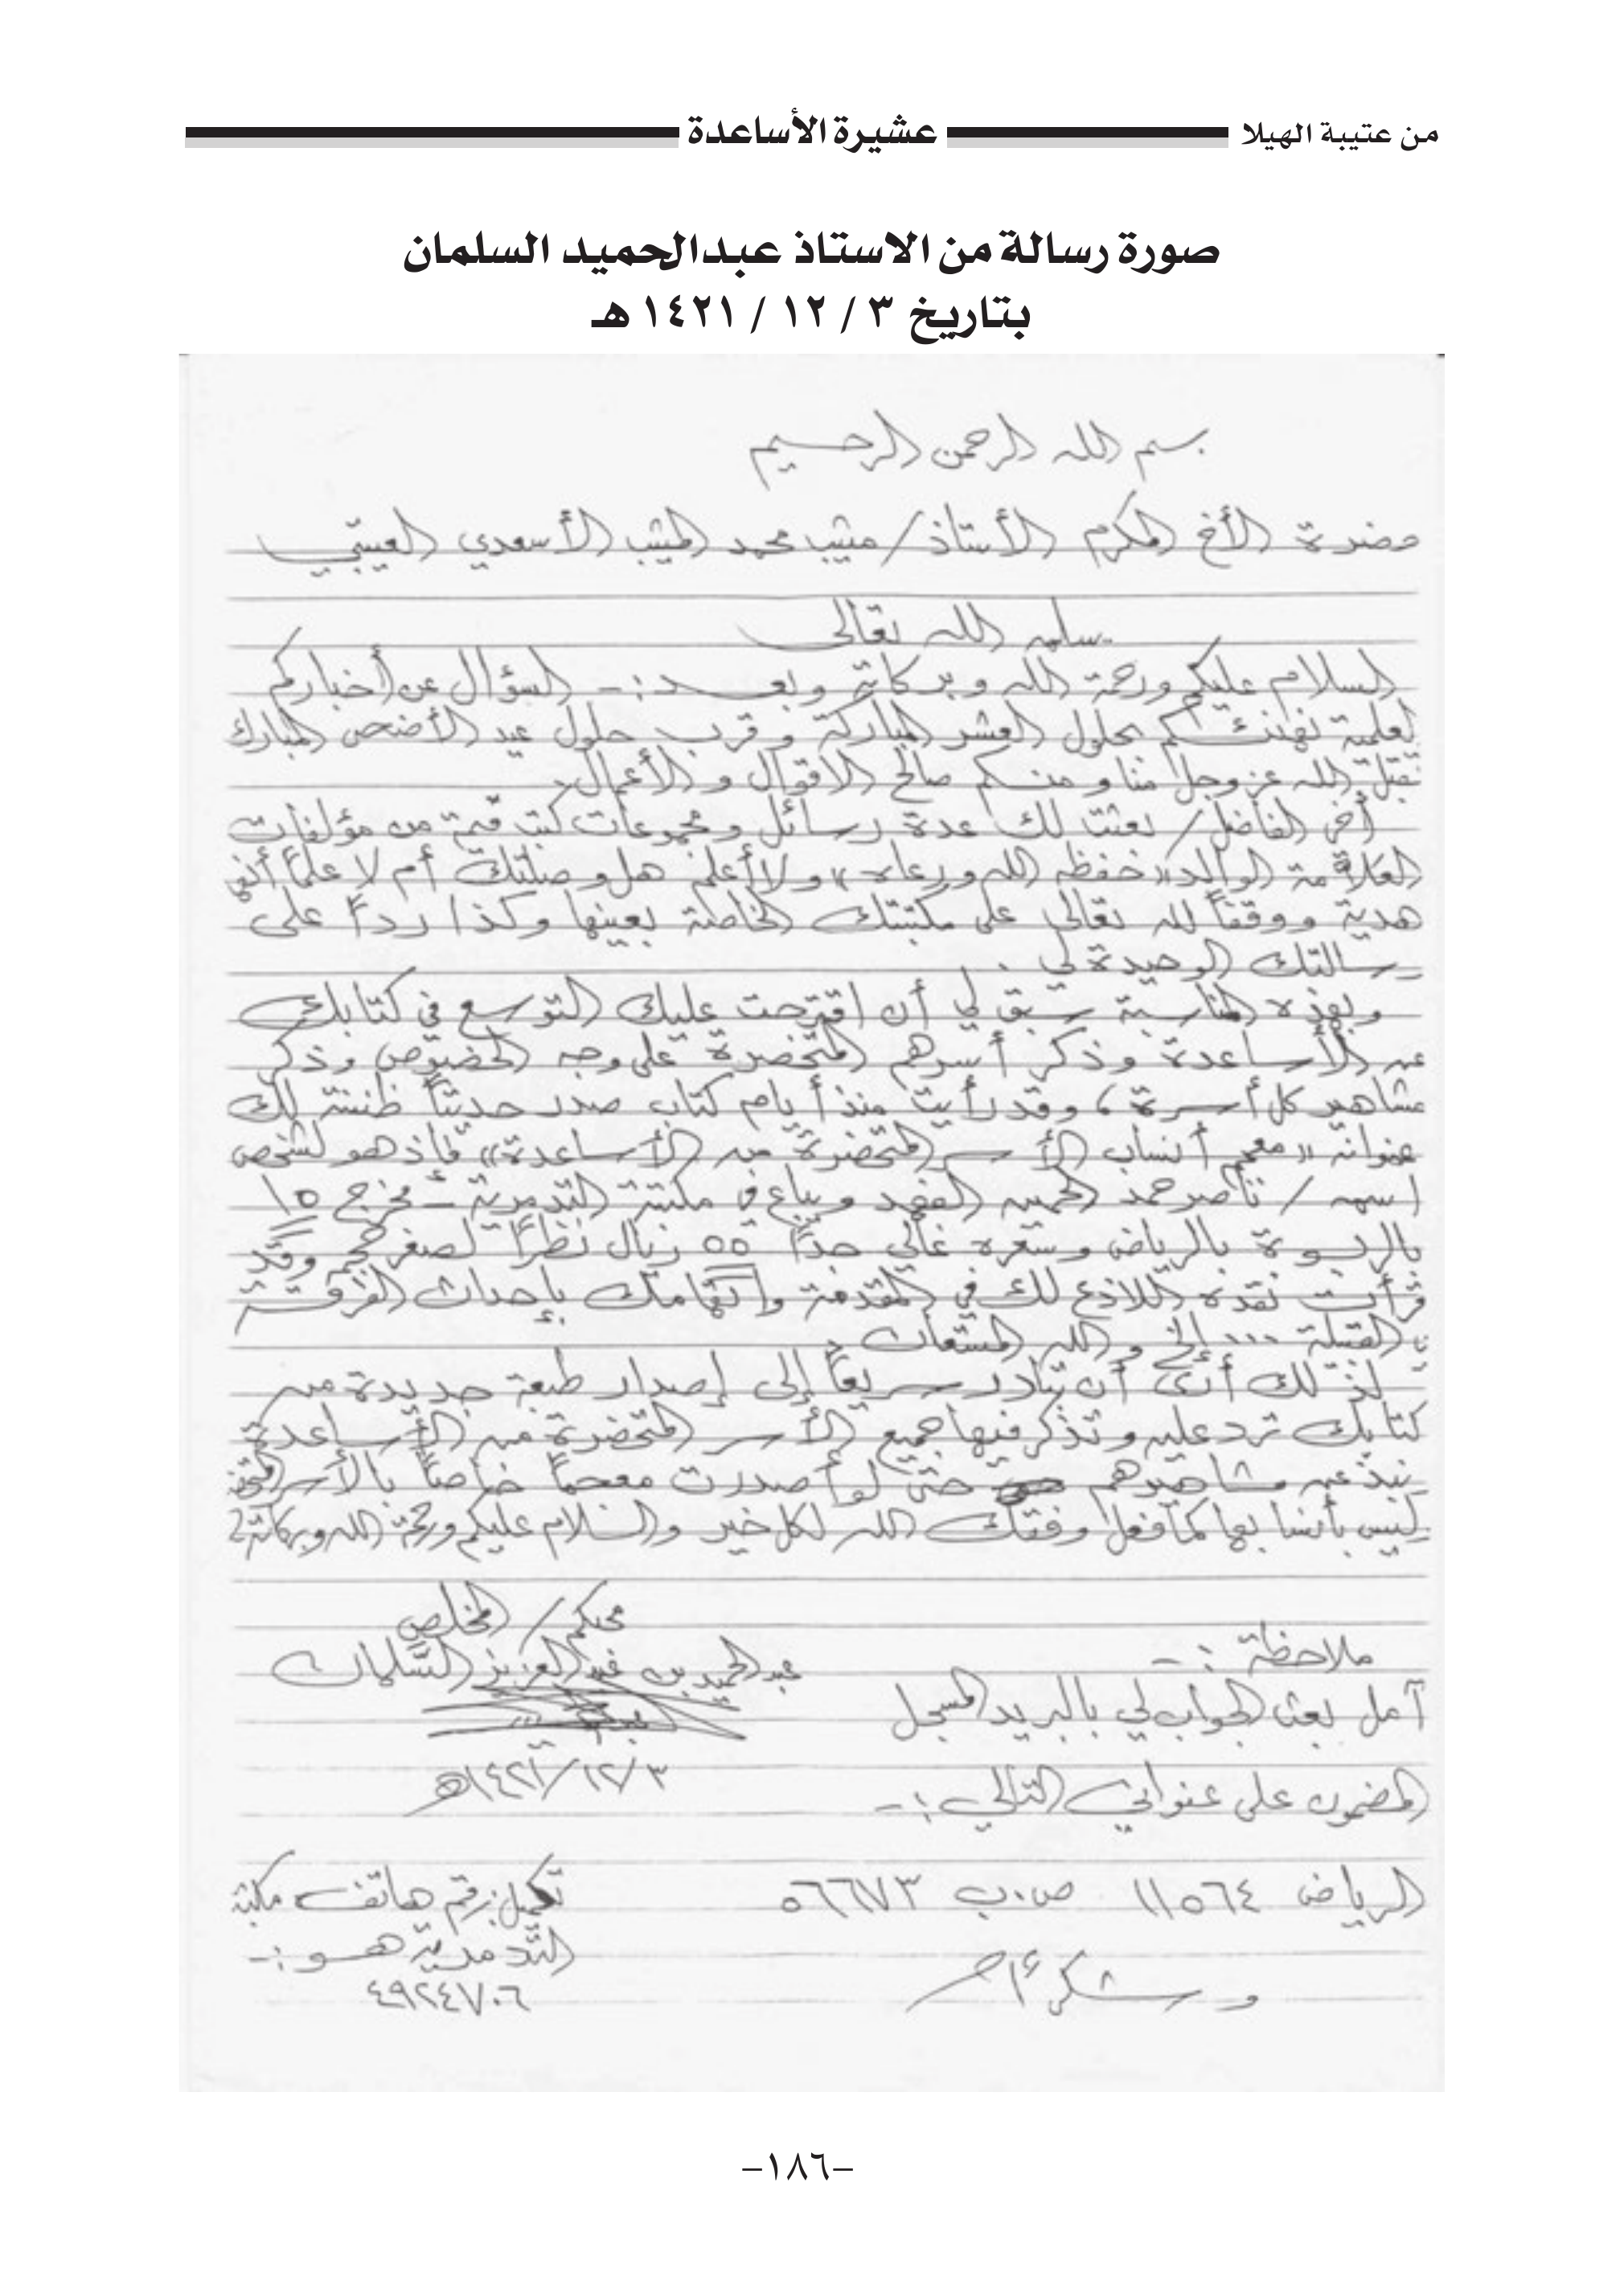 من عتيبة الهيلا
عشيرة الأساعدة
صورة رسالة من الاستاذ عبدالحميد السلمان
بتاريخ ٣ / ١٢ / ١٤٢١ هـ
بسم الله الرحمن الرحيم
حضرة الأخ المكرم الأستاذ / محمد الأسعدي العتيبي
سلمه الله تعالى
السلام عليكم ورحمة الله وبركاته وبعد :- السؤال عن أخباركم
لعلمية نهنئكم بحلول العشر المباركة وقرب حلول عيد الأضحى المبارك
تقبل الله عز وجل منا ومنكم صالح الاقوال والأعمال .
أخي الفاضل / بعثت لك عدة رسائل ومجموعات كتب قيمة من مؤلفات
العلامة الوالد «حفظه الله ورعاه» ولا أعلم هل وصلتك أم لا علماً أنها
هدية ووقفاً لله تعالى على مكتبتك الخاصة بعينها وكذا رداً على
رسالتك الوحيدة لي .
وبهذه المناسبة سبق لي أن اقترحت عليك التوسع في كتابك
عن الأساعدة وذكر أسرهم المتحضرة على وجه الخصوص وذكر
مشاهير كل أسرة ، وقد رأيت منذ أيام كتاب صدر حديثاً ظننته لك
عنوانه «معجم أنساب الأسر المتحضرة من الأساعدة» فإذ هو لشخص
اسمه / ناصر حمد الفهد ويباع في مكتبة التدمرية - مخرج ١٥
بالربوة بالرياض وسعره غالي جداً ٥٥ ريال نظراً لصغر حجمه وقد
قرأت نقده اللاذع لك في المقدمة واتهامك بإحداث الفرقة
القبيلة ... إلخ والله المستعان .
لذلك أرى أن تبادر سريعاً إلى إصدار طبعة جديدة من
كتابك ترد عليه وتذكر فيها جميع الأسر المتحضرة من الأساعدة
نبذ عن مشاهيرهم حتى لو أصدرت معجماً خاصاً بالأسر
ليس بأنسابها كما فعل وفقك الله لكل خير والسلام عليكم ورحمة الله وبركاته
محبكم / المخلص
عبدالحميد بن عبدالعزيز السلمان
١٤٢١/١٢/٣هـ
ملاحظة :-
آمل بعث الجواب لي بالبريد المسجل
المضمون على عنواني التالي :-
الرياض ١١٥٦٤ ص.ب ٥٦٦٧٣
وشكراً
رقم هاتف مكتبة
التدمرية هو :-
٤٩٢٤٧٠٦
-١٨٦-